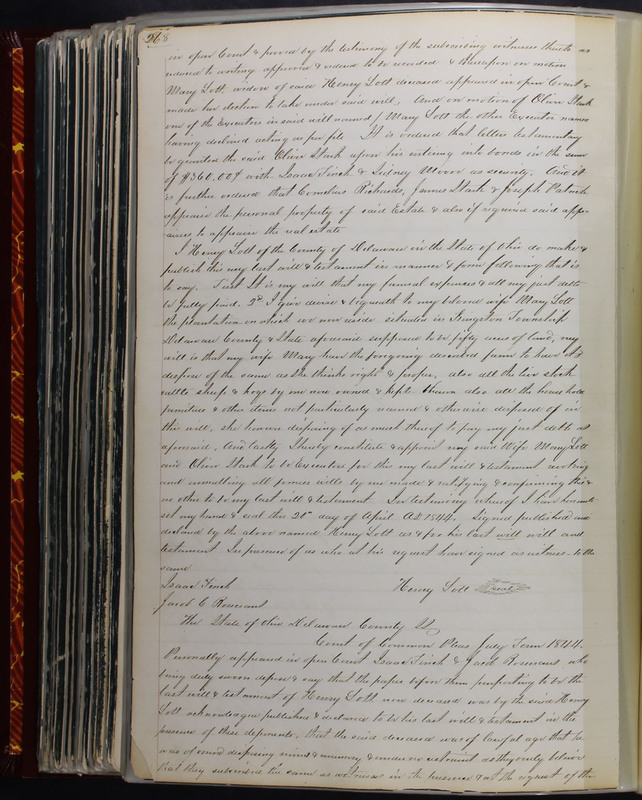 268
in open Court & proved by the testimony of the subscribing witnesses thereto as
reduced to writing approved & ordered to be recorded & thereupon on motion
Mary Lott widow of said Henry Lott deceased appeared in open Court &
made her election to take under said will, And on motion of Oliver Stark
one of the Executors in said will named / Mary Lott the other Executor named
having declined acting as per file It is ordered that letters testamentary
be granted the said Oliver Stark upon his entering into bonds in the sum
of $360.00 with Isaac Finch & Sidney Moore as security. And it
is further ordered that Cornelius Richards, James Stark & Joseph Patrick
appraise the personal property of said Estate & also if required said appr-
aisers to appraise the real estate
I Henry Lott of the County of Delaware in the State of Ohio do make &
publish this my last will & testament in manner & form following that is
to say. First It is my will that my funeral expenses & all my just debts
be fully paid. 2d I give devise & bequeath to my beloved wife Mary Lott
the plantation on which we now reside situated in Kingston Township
Delaware County & State aforesaid supposed to be fifty acres of land, my
will is that my wife Mary have the foregoing described farm to have &
dispose of the same as she thinks right & proper, also all the live stock
cattle sheep & hogs by me now owned & kept thereon also all the household
furniture & other items not particularly named & otherwise disposed of in
this will, she however disposing of as much thereof to pay my just debts as
aforesaid, And lastly I hereby constitute & appoint my said Wife Mary Lott
and Oliver Stark to be Executors for this my last will & testament revoking
and annulling all former wills by me made & ratifying & confirming this &
no other to be my last will & testament. In testimony whereof I have hereunto
set my hand & seal this 25 day of April AD 1844. Signed published and
declared by the above named Henry Lott as & for his last will will and
testament In presence of us who at his request have signed as witness- to the
same
Isaac Finch Henry Lott seal
Jacob C Rosecrans
The State of Ohio Delaware County SS
Court of Common Pleas July Term 1844.
Personally appeared in open Court Isaac Finch & Jacob Rosecrans who
being duly sworn depose & say that the paper before them purporting to be the
last will & testament of Henry Lott now deceased was by the said Henry
Lott acknowledged published & declared to be his last will & testament in the
presence of these deponents, that the said deceased was of lawful age that he
was of sound disposing mind & memory & under no restraint as they verily believe
that they subscribed the same as witnesses in the presence & at the request of the